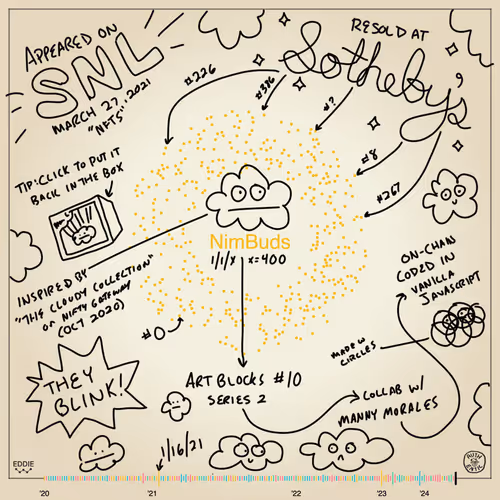 APPEARED ON
SNL
MARCH 27, 2021
"NFTS"
RESOLD AT
Sotheby's
#226
#386
#?
#8
#267
TIP: CLICK TO PUT IT
BACK IN THE BOX
NimBuds
1/1/X X=400
INSPIRED BY
"THE CLOUDY COLLECTION"
ON NIFTY GATEWAY
(OCT 2020)
#0
ON-CHAIN
CODED IN
VANILLA
JAVASCRIPT
MADE W/
CIRCLES
THEY
BLINK!
ART BLOCKS #10
SERIES 2
COLLAB W/
MANNY MORALES
1/16/21
EDDIE
'20 '21 '22 '23 '24